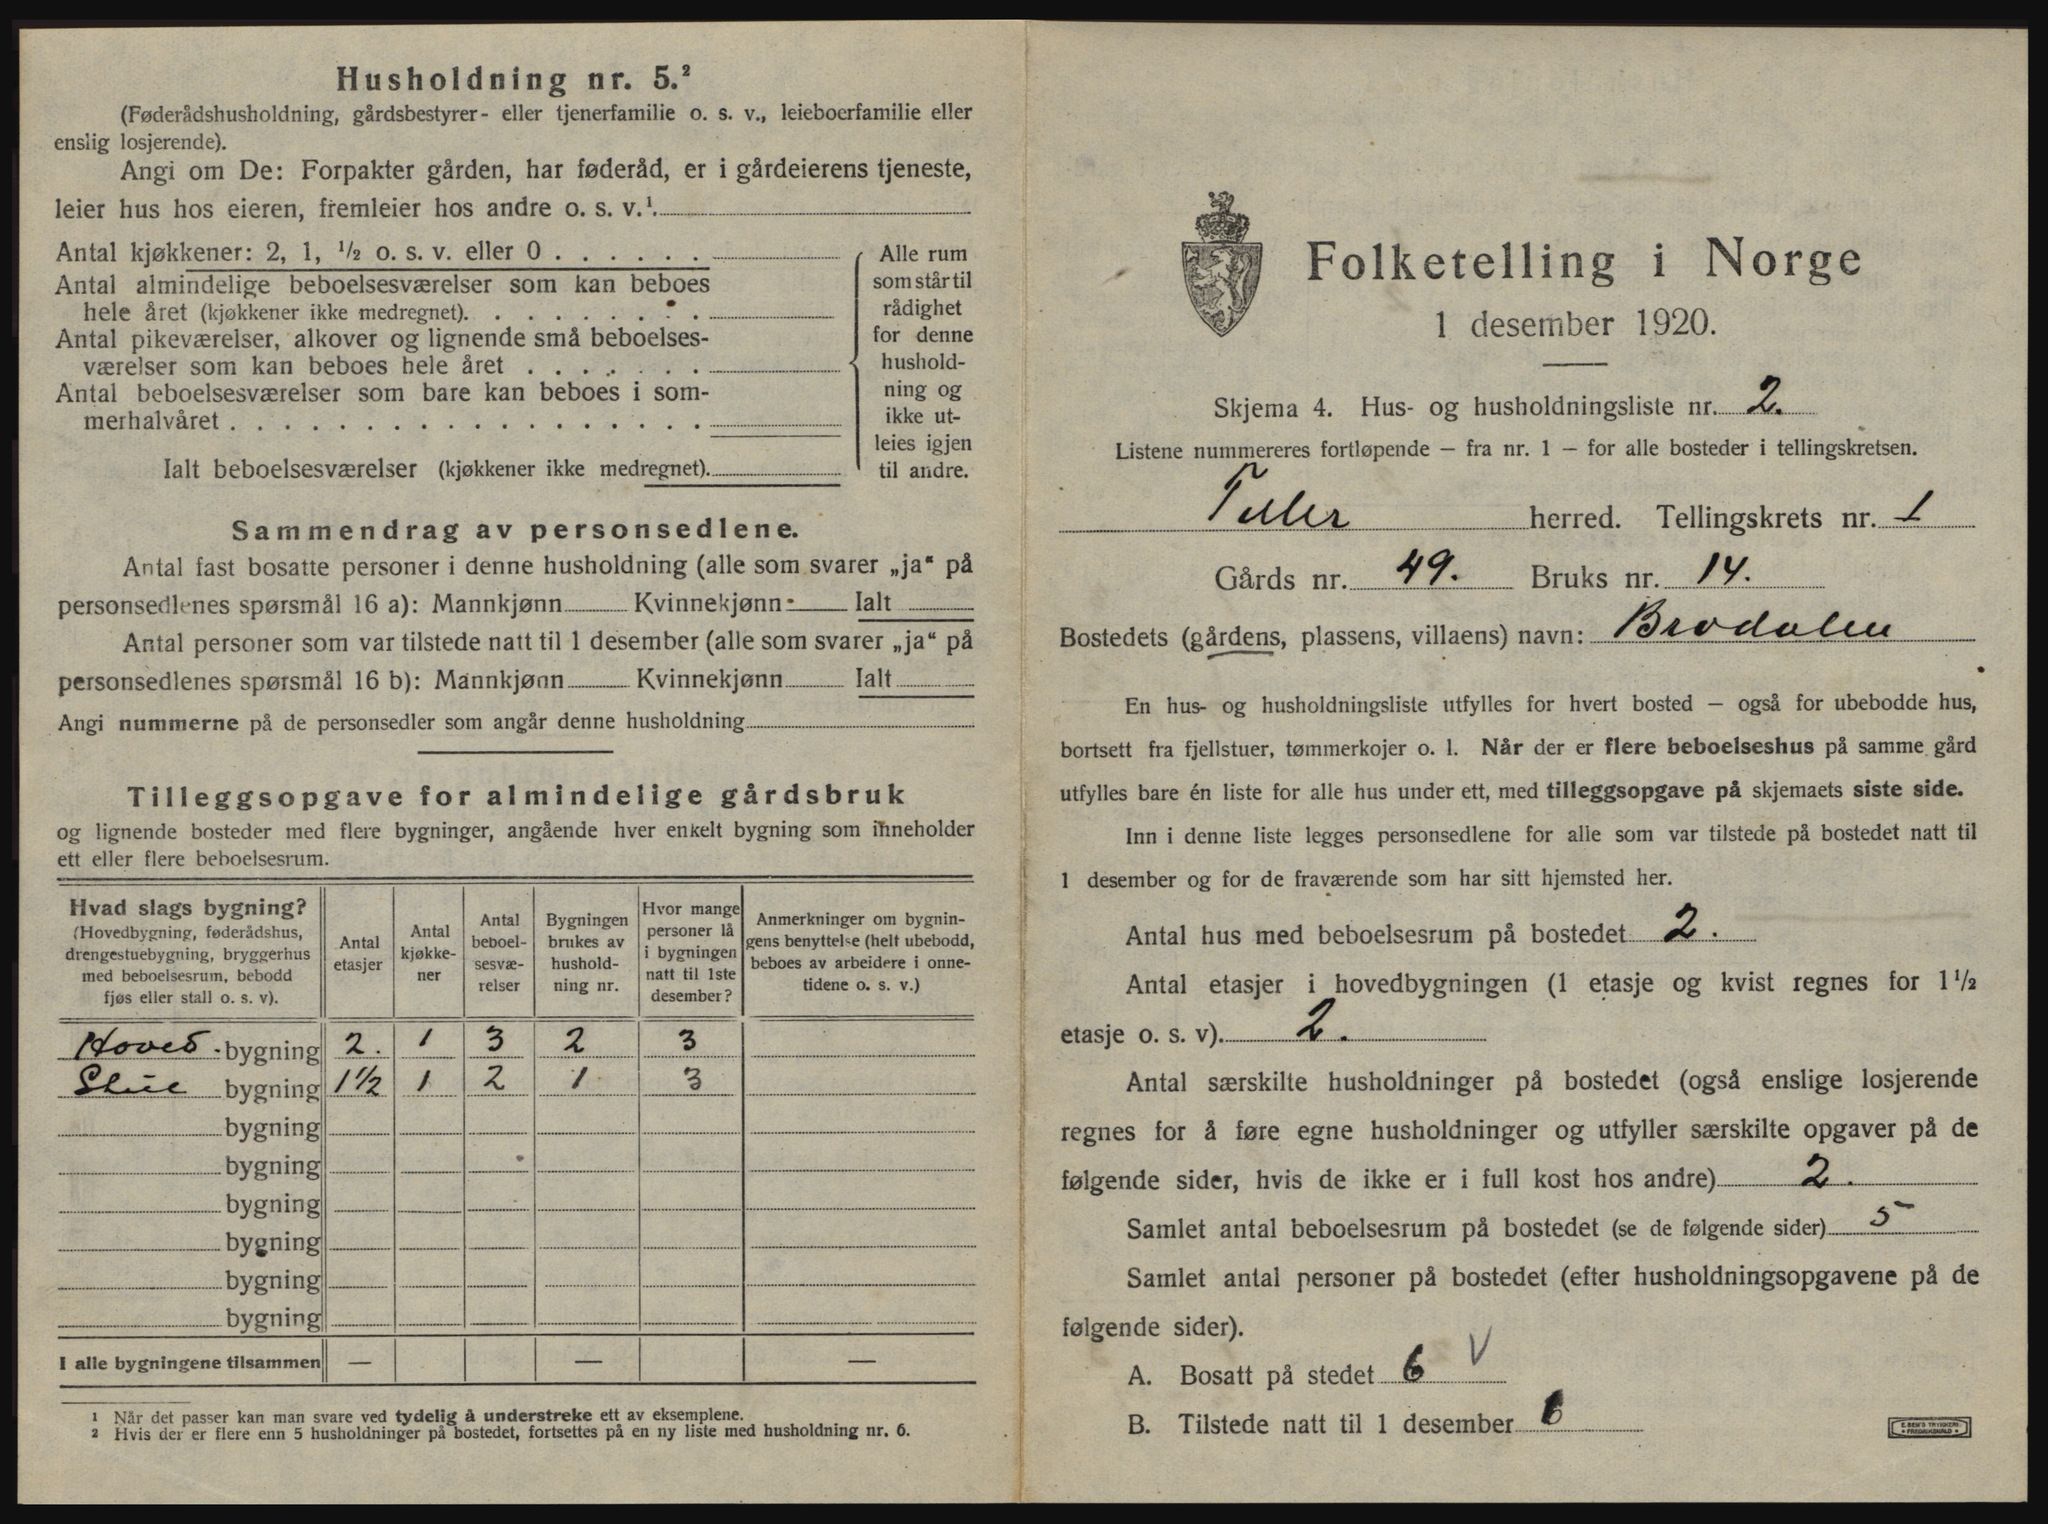 Husholdning nr. 5.²
(Føderådshusholdning, gårdsbestyrer- eller tjenerfamilie o. s. v., leieboerfamilie eller
enslig losjerende).
Angi om De: Forpakter gården, har føderåd, er i gårdeierens tjeneste,
leier hus hos eieren, fremleier hos andre o. s. v.¹.
Antal kjøkkener: 2, 1, ½ o. s. v. eller 0 . . . . . .
Antal almindelige beboelsesværelser som kan beboes
hele året (kjøkkener ikke medregnet). . . . . . . . .
Antal pikeværelser, alkover og lignende små beboelses-
værelser som kan beboes hele året . . . . . . .
Antal beboelsesværelser som bare kan beboes i som-
merhalvåret . . . . . . . . . . . . . . . . . .
Ialt beboelsesværelser (kjøkkener ikke medregnet).
Alle rum
som står til
rådighet
for denne
hushold-
ning og
ikke ut-
leies igjen
til andre.
Sammendrag av personsedlene.
Antal fast bosatte personer i denne husholdning (alle som svarer „ja“ på
personsedlenes spørsmål 16 a): Mannkjønn Kvinnekjønn Ialt
Antal personer som var tilstede natt til 1 desember (alle som svarer „ja“ på
personsedlenes spørsmål 16 b): Mannkjønn Kvinnekjønn Ialt
Angi nummerne på de personsedler som angår denne husholdning
Tilleggsopgave for almindelige gårdsbruk
og lignende bosteder med flere bygninger, angående hver enkelt bygning som inneholder
ett eller flere beboelsesrum.
Hvad slags bygning?
(Hovedbygning, føderådshus,
drengestuebygning, bryggerhus
med beboelsesrum, bebodd
fjøs eller stall o. s. v).
Antal
etasjer
Antal
kjøkke-
ner
Antal
beboel-
sesvæ-
relser
Bygningen
brukes av
hushold-
ning nr.
Hvor mange
personer lå
i bygningen
natt til 1ste
desember?
Anmerkninger om bygnin-
gens benyttelse (helt ubebodd,
beboes av arbeidere i onne-
tidene o. s. v.)
Hoved. bygning 2. 1 3 2 3
bygning 1½ 1 2 1 3
bygning
bygning
bygning
bygning
bygning
bygning
I alle bygningene tilsammen — — —
¹ Når det passer kan man svare ved tydelig å understreke ett av eksemplene.
² Hvis der er flere enn 5 husholdninger på bostedet, fortsettes på en ny liste med husholdning nr. 6.
Folketelling i Norge
1 desember 1920.
Skjema 4. Hus- og husholdningsliste nr. 2.
Listene nummereres fortløpende — fra nr. 1 — for alle bosteder i tellingskretsen.
Tiller herred. Tellingskrets nr. 1
Gårds nr. 49. Bruks nr. 14.
Bostedets (gårdens, plassens, villaens) navn: Brødalen
En hus- og husholdningsliste utfylles for hvert bosted — også for ubebodde hus,
bortsett fra fjellstuer, tømmerkojer o. l. Når der er flere beboelseshus på samme gård
utfylles bare én liste for alle hus under ett, med tilleggsopgave på skjemaets siste side.
Inn i denne liste legges personsedlene for alle som var tilstede på bostedet natt til
1 desember og for de fraværende som har sitt hjemsted her.
Antal hus med beboelsesrum på bostedet 2.
Antal etasjer i hovedbygningen (1 etasje og kvist regnes for 1½
etasje o. s. v). 2.
Antal særskilte husholdninger på bostedet (også enslige losjerende
regnes for å føre egne husholdninger og utfyller særskilte opgaver på de
følgende sider, hvis de ikke er i full kost hos andre) 2.
Samlet antal beboelsesrum på bostedet (se de følgende sider) 5
Samlet antal personer på bostedet (efter husholdningsopgavene på de
følgende sider).
A. Bosatt på stedet 6 V
B. Tilstede natt til 1 desember 6